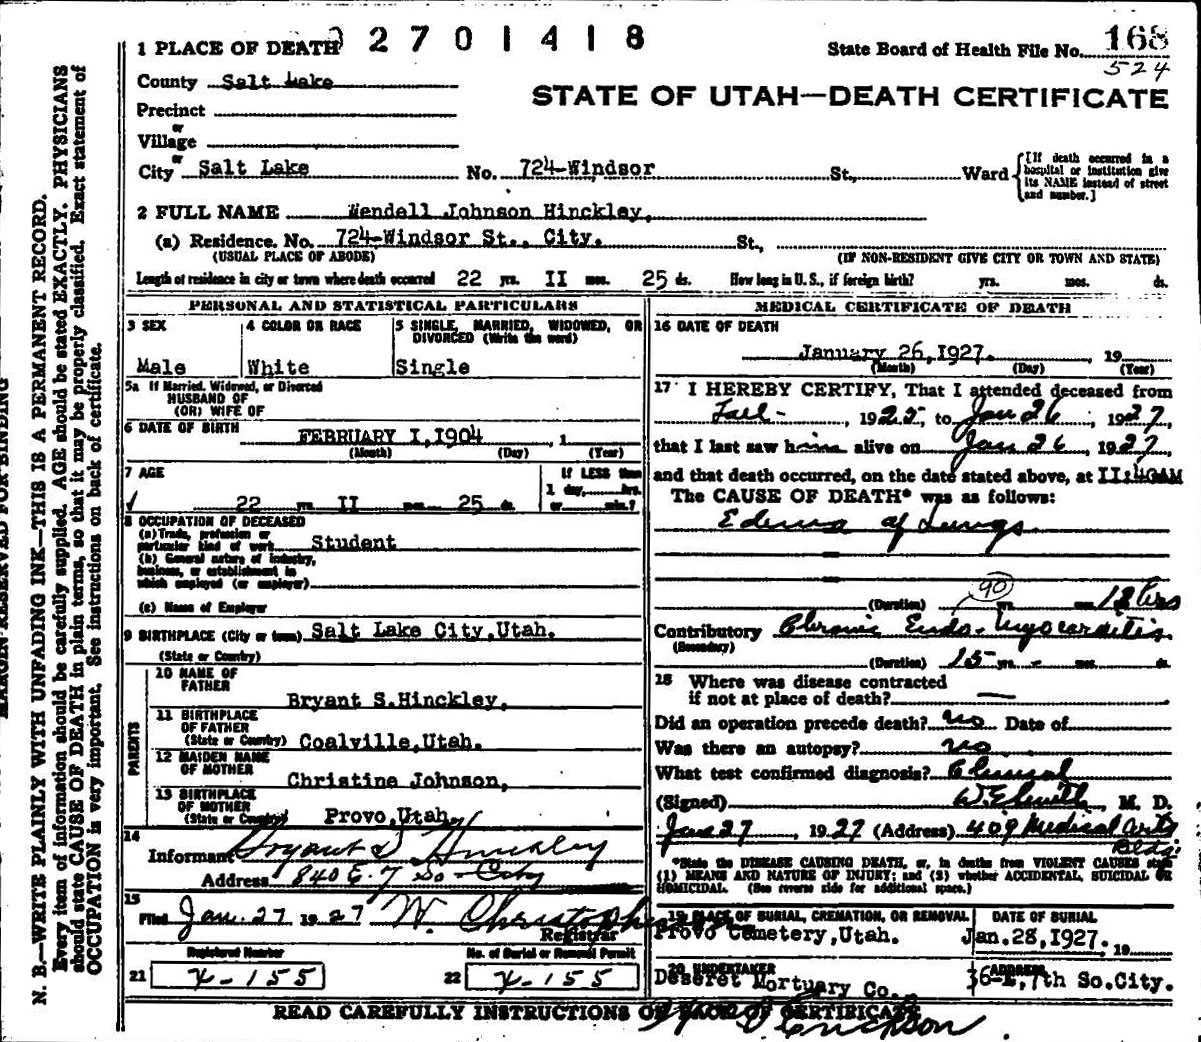 1 PLACE OF DEATH 2 7 0 1 4 1 8
State Board of Health File No. 168
524
County Salt Lake
STATE OF UTAH—DEATH CERTIFICATE
Precinct
or
Village
or
City Salt Lake No. 724-Windsor St., Ward {[If death occurred in a hospital or institution give its NAME instead of street and number.]
2 FULL NAME Wendell Johnson Hinckley,
(a) Residence. No. 724-Windsor St., City. St.,
(USUAL PLACE OF ABODE) (IF NON-RESIDENT GIVE CITY OR TOWN AND STATE)
Length of residence in city or town where death occurred 22 yrs. II mos. 25 ds. How long in U. S., if foreign birth? yrs. mos. ds.
PERSONAL AND STATISTICAL PARTICULARS
3 SEX
Male
4 COLOR OR RACE
White
5 SINGLE, MARRIED, WIDOWED, OR
DIVORCED (Write the word)
Single
5a If Married, Widowed, or Divorced
HUSBAND OF
(OR) WIFE OF
6 DATE OF BIRTH FEBRUARY I,1904 , 1
(Month) (Day) (Year)
7 AGE
22 yrs. II mos. 25 ds.
If LESS than
1 day, hrs.
or min.?
8 OCCUPATION OF DECEASED
(a) Trade, profession or
particular kind of work Student
(b) General nature of industry,
business, or establishment in
which employed (or employer)
(c) Name of Employer
9 BIRTHPLACE (City or town) Salt Lake City,Utah.
(State or Country)
PARENTS
10 NAME OF
FATHER
Bryant S.Hinckley,
11 BIRTHPLACE
OF FATHER
(State or Country) Coalville,Utah.
12 MAIDEN NAME
OF MOTHER
Christine Johnson,
13 BIRTHPLACE
OF MOTHER
(State or Country) Provo,Utah
14
Informant Bryant S Hinckley
Address 840 E. 7 So - City
15
Filed Jan. 27 1927 W. Christopherson
Registrar
Registered Number No. of Burial or Removal Permit
21 X-155 22 X-155
MEDICAL CERTIFICATE OF DEATH
16 DATE OF DEATH
January 26,1927. , 19
(Month) (Day) (Year)
17 I HEREBY CERTIFY, That I attended deceased from
Fall - 1925 to Jan 26, 1927,
that I last saw him alive on Jan 26, 1927,
and that death occurred, on the date stated above, at II:40AM
The CAUSE OF DEATH* was as follows:
Edema of Lungs
90
(Duration) yrs. mos. 18 hrs
Contributory Chronic Endo-Myocarditis
(Secondary)
(Duration) 15 yrs. - mos. ds.
18 Where was disease contracted
if not at place of death? —
Did an operation precede death? no Date of
Was there an autopsy? no
What test confirmed diagnosis? Clinical
(Signed) M. D.
Jan 27, 1927 (Address) 409 Medical Arts
Bldg.
*State the DISEASE CAUSING DEATH, or, in deaths from VIOLENT CAUSES state
(1) MEANS AND NATURE OF INJURY; and (2) whether ACCIDENTAL, SUICIDAL OR
HOMICIDAL. (See reverse side for additional space.)
19 PLACE OF BURIAL, CREMATION, OR REMOVAL
Provo Cemetery,Utah.
DATE OF BURIAL
Jan.28,1927. 19
20 UNDERTAKER
Deseret Mortuary Co.
ADDRESS
36-E,7th So.City.
READ CAREFULLY INSTRUCTIONS ON BACK OF CERTIFICATE
MARGEN RESERVED FOR BINDING
N. B.—WRITE PLAINLY WITH UNFADING INK—THIS IS A PERMANENT RECORD.
Every item of information should be carefully supplied. AGE should be stated EXACTLY. PHYSICIANS
should state CAUSE OF DEATH in plain terms, so that it may be properly classified. Exact statement of
OCCUPATION is very important. See instructions on back of certificate.